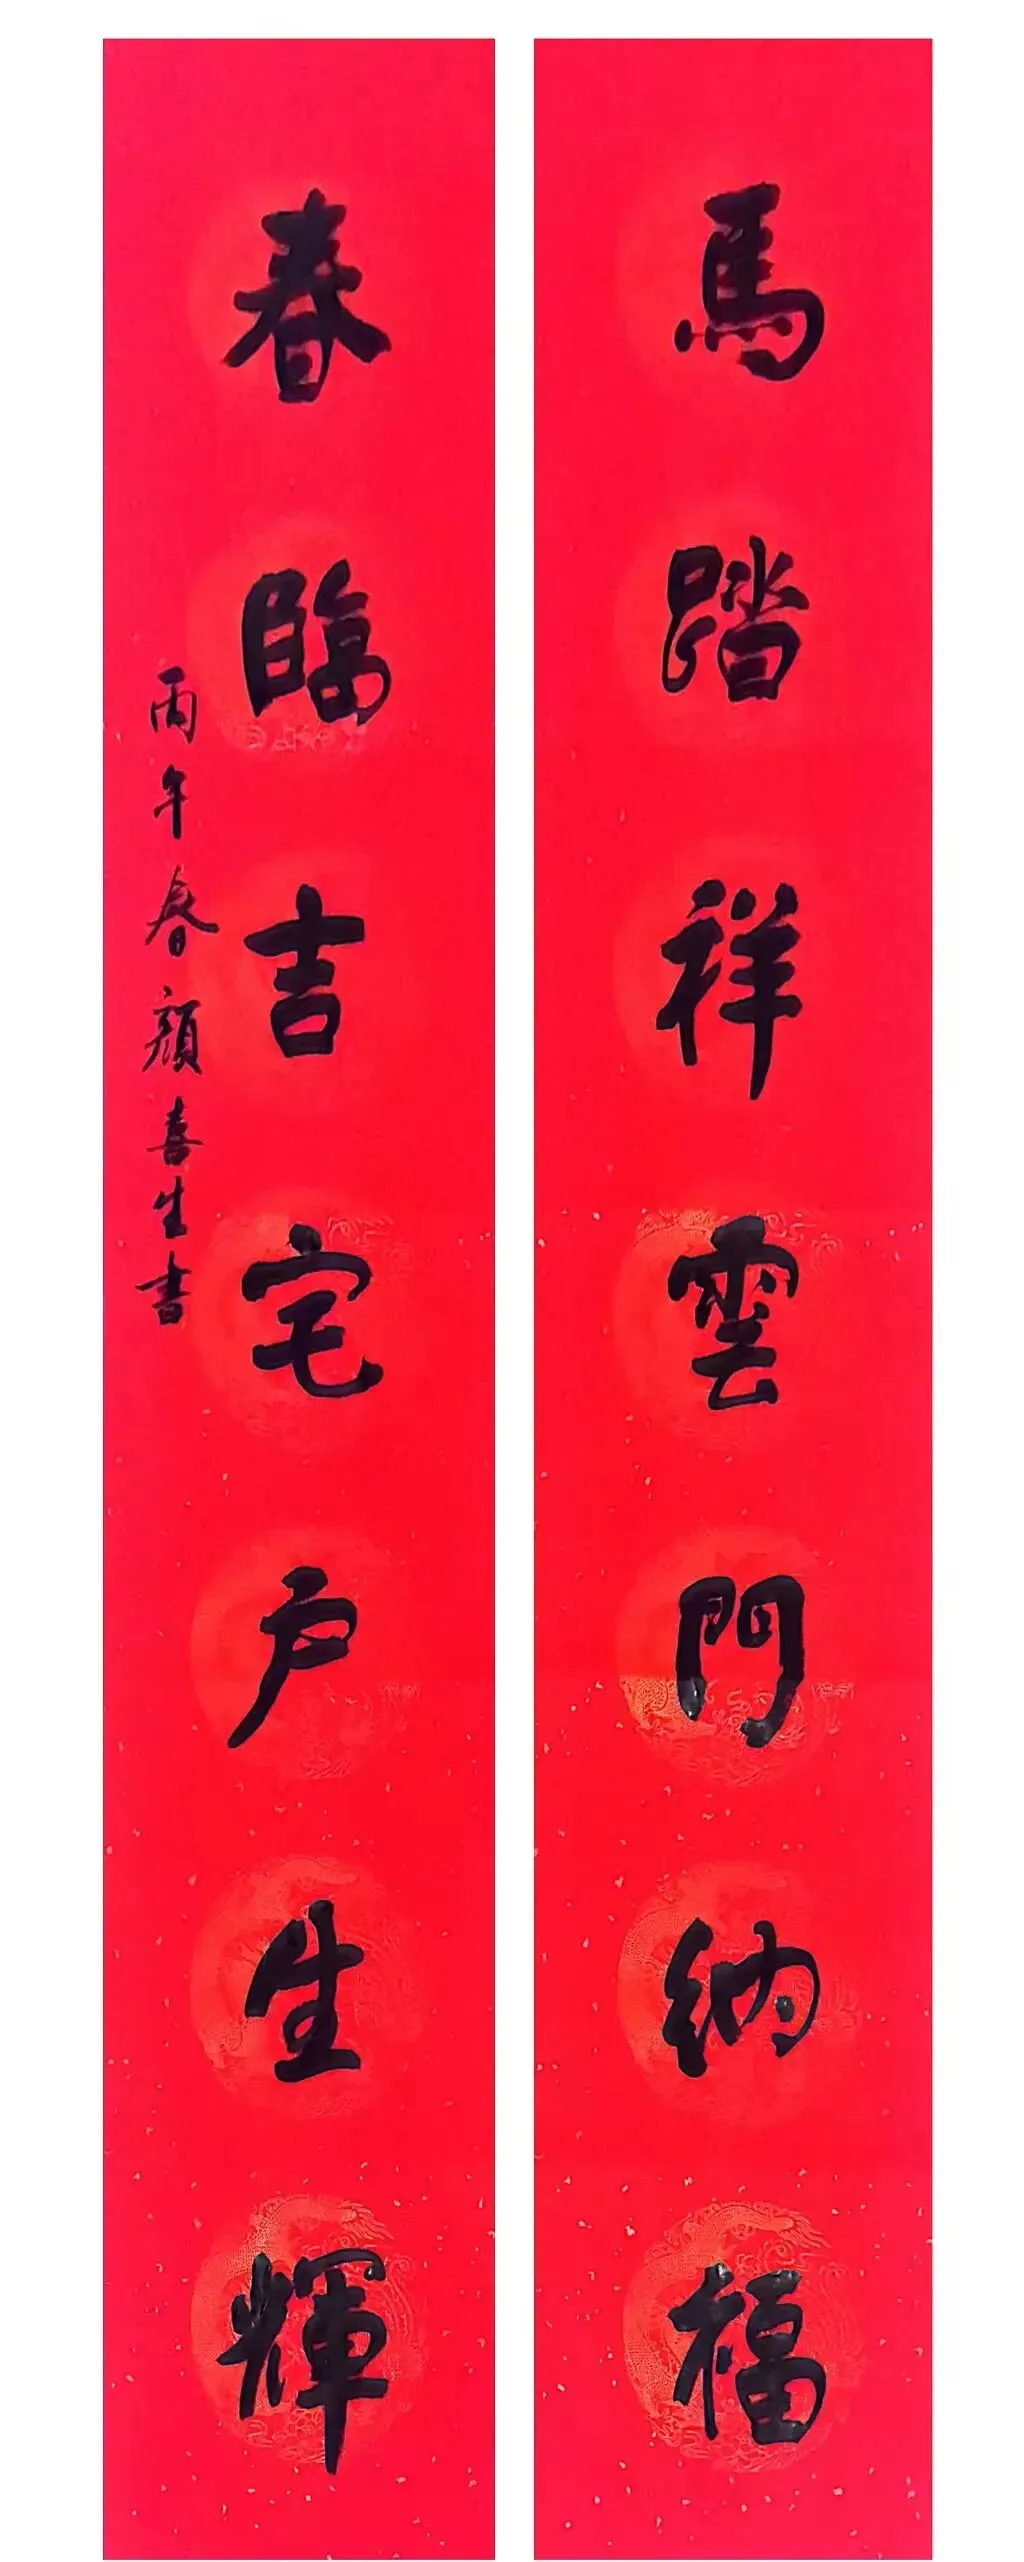 馬踏祥雲門納福
春臨吉宅户生輝
丙午春顏喜生書